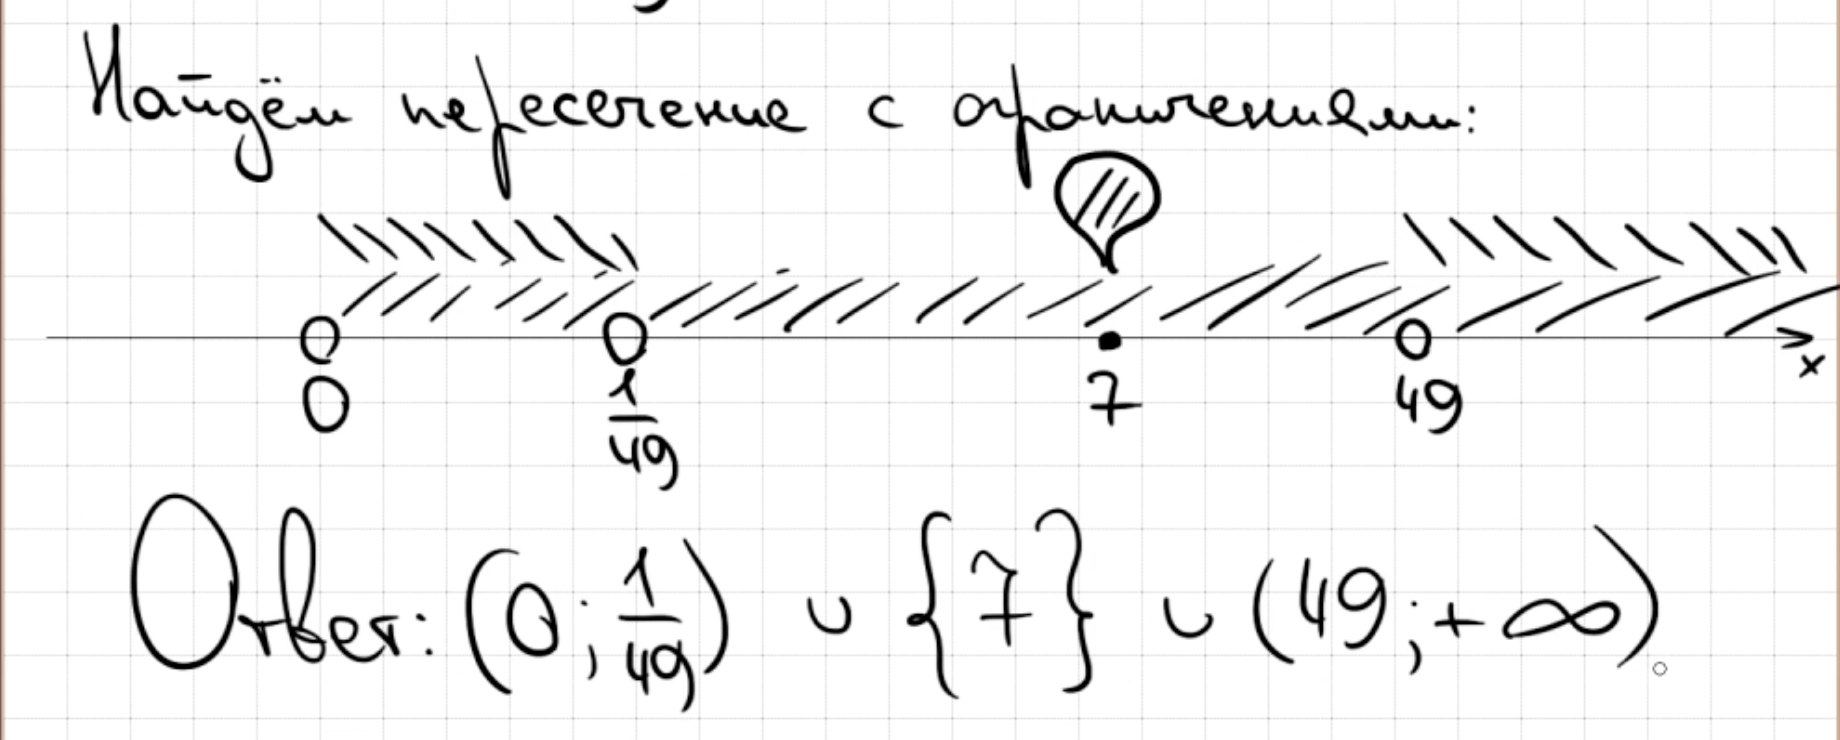 Найдём пересечение с ограничениями:
0 1/49 7 49 x
Ответ: (0; 1/49) ∪ {7} ∪ (49; +∞).